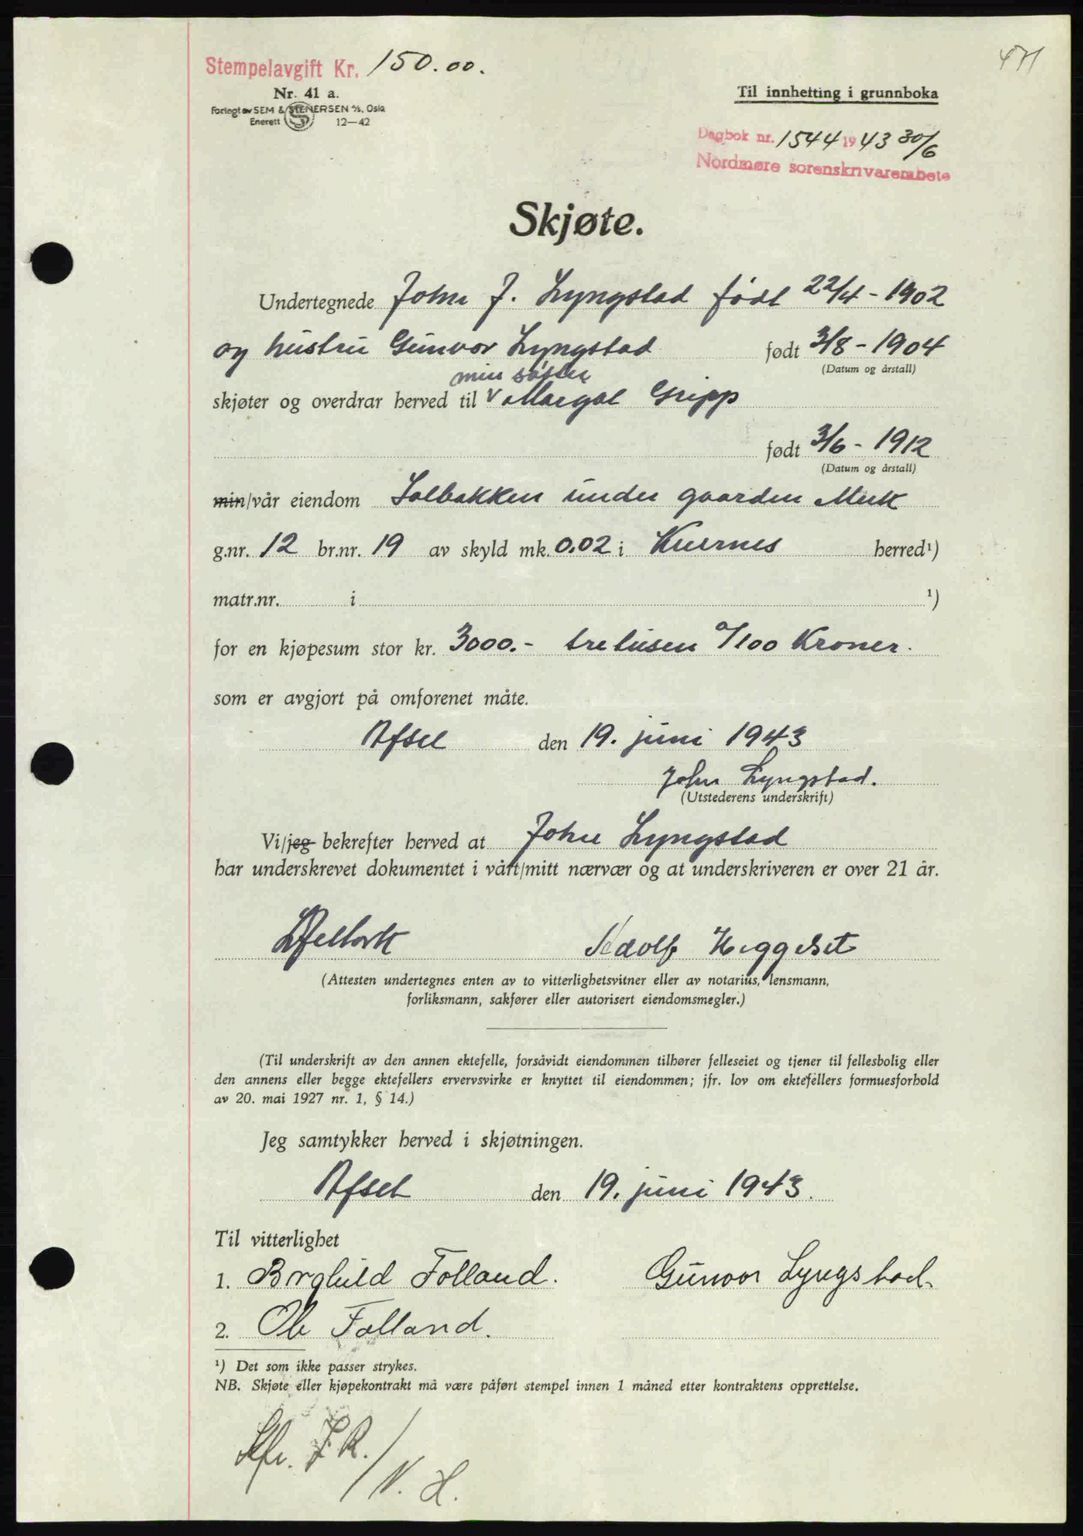 471
Stempelavgift Kr. 150.00.
Nr. 41 a.
Forlegt av SEM & STENERSEN A/S, Oslo
Enerett 12—42
Til innhefting i grunnboka
Dagbok nr. 1544 1943 30/6
Nordmøre sorenskrivarembete
Skjøte.
Undertegnede John J. Lyngstad født 22/4 - 1902
og hustru Gunvor Lyngstad født 3/8 - 1904
(Datum og årstall)
min søster
skjøter og overdrar herved til V Margot Gripp
født 3/6 - 1912
(Datum og årstall)
min/vår eiendom Solbakken under gaarden Merk
g.nr. 12 br.nr. 19 av skyld mk. 0.02 i Kvernes herred¹)
matr.nr. i ¹)
for en kjøpesum stor kr. 3000.- tretusen 0/100 Kroner.
som er avgjort på omforenet måte.
Afset den 19. juni 1943
John Lyngstad.
(Utstederens underskrift)
Vi/jeg bekrefter herved at John Lyngstad
har underskrevet dokumentet i vårt/mitt nærvær og at underskriveren er over 21 år.
Adolf Heggeset
(Attesten undertegnes enten av to vitterlighetsvitner eller av notarius, lensmann,
forliksmann, sakfører eller autorisert eiendomsmegler.)
(Til underskrift av den annen ektefelle, forsåvidt eiendommen tilhører felleseiet og tjener til fellesbolig eller
den annens eller begge ektefellers ervervsvirke er knyttet til eiendommen; jfr. lov om ektefellers formuesforhold
av 20. mai 1927 nr. 1, § 14.)
Jeg samtykker herved i skjøtningen.
Afset den 19. juni 1943.
Til vitterlighet
1. Borghild Folland. Gunvor Lyngstad.
2. Ole Folland.
¹) Det som ikke passer strykes.
NB. Skjøte eller kjøpekontrakt må være påført stempel innen 1 måned etter kontraktens opprettelse.
N. H.